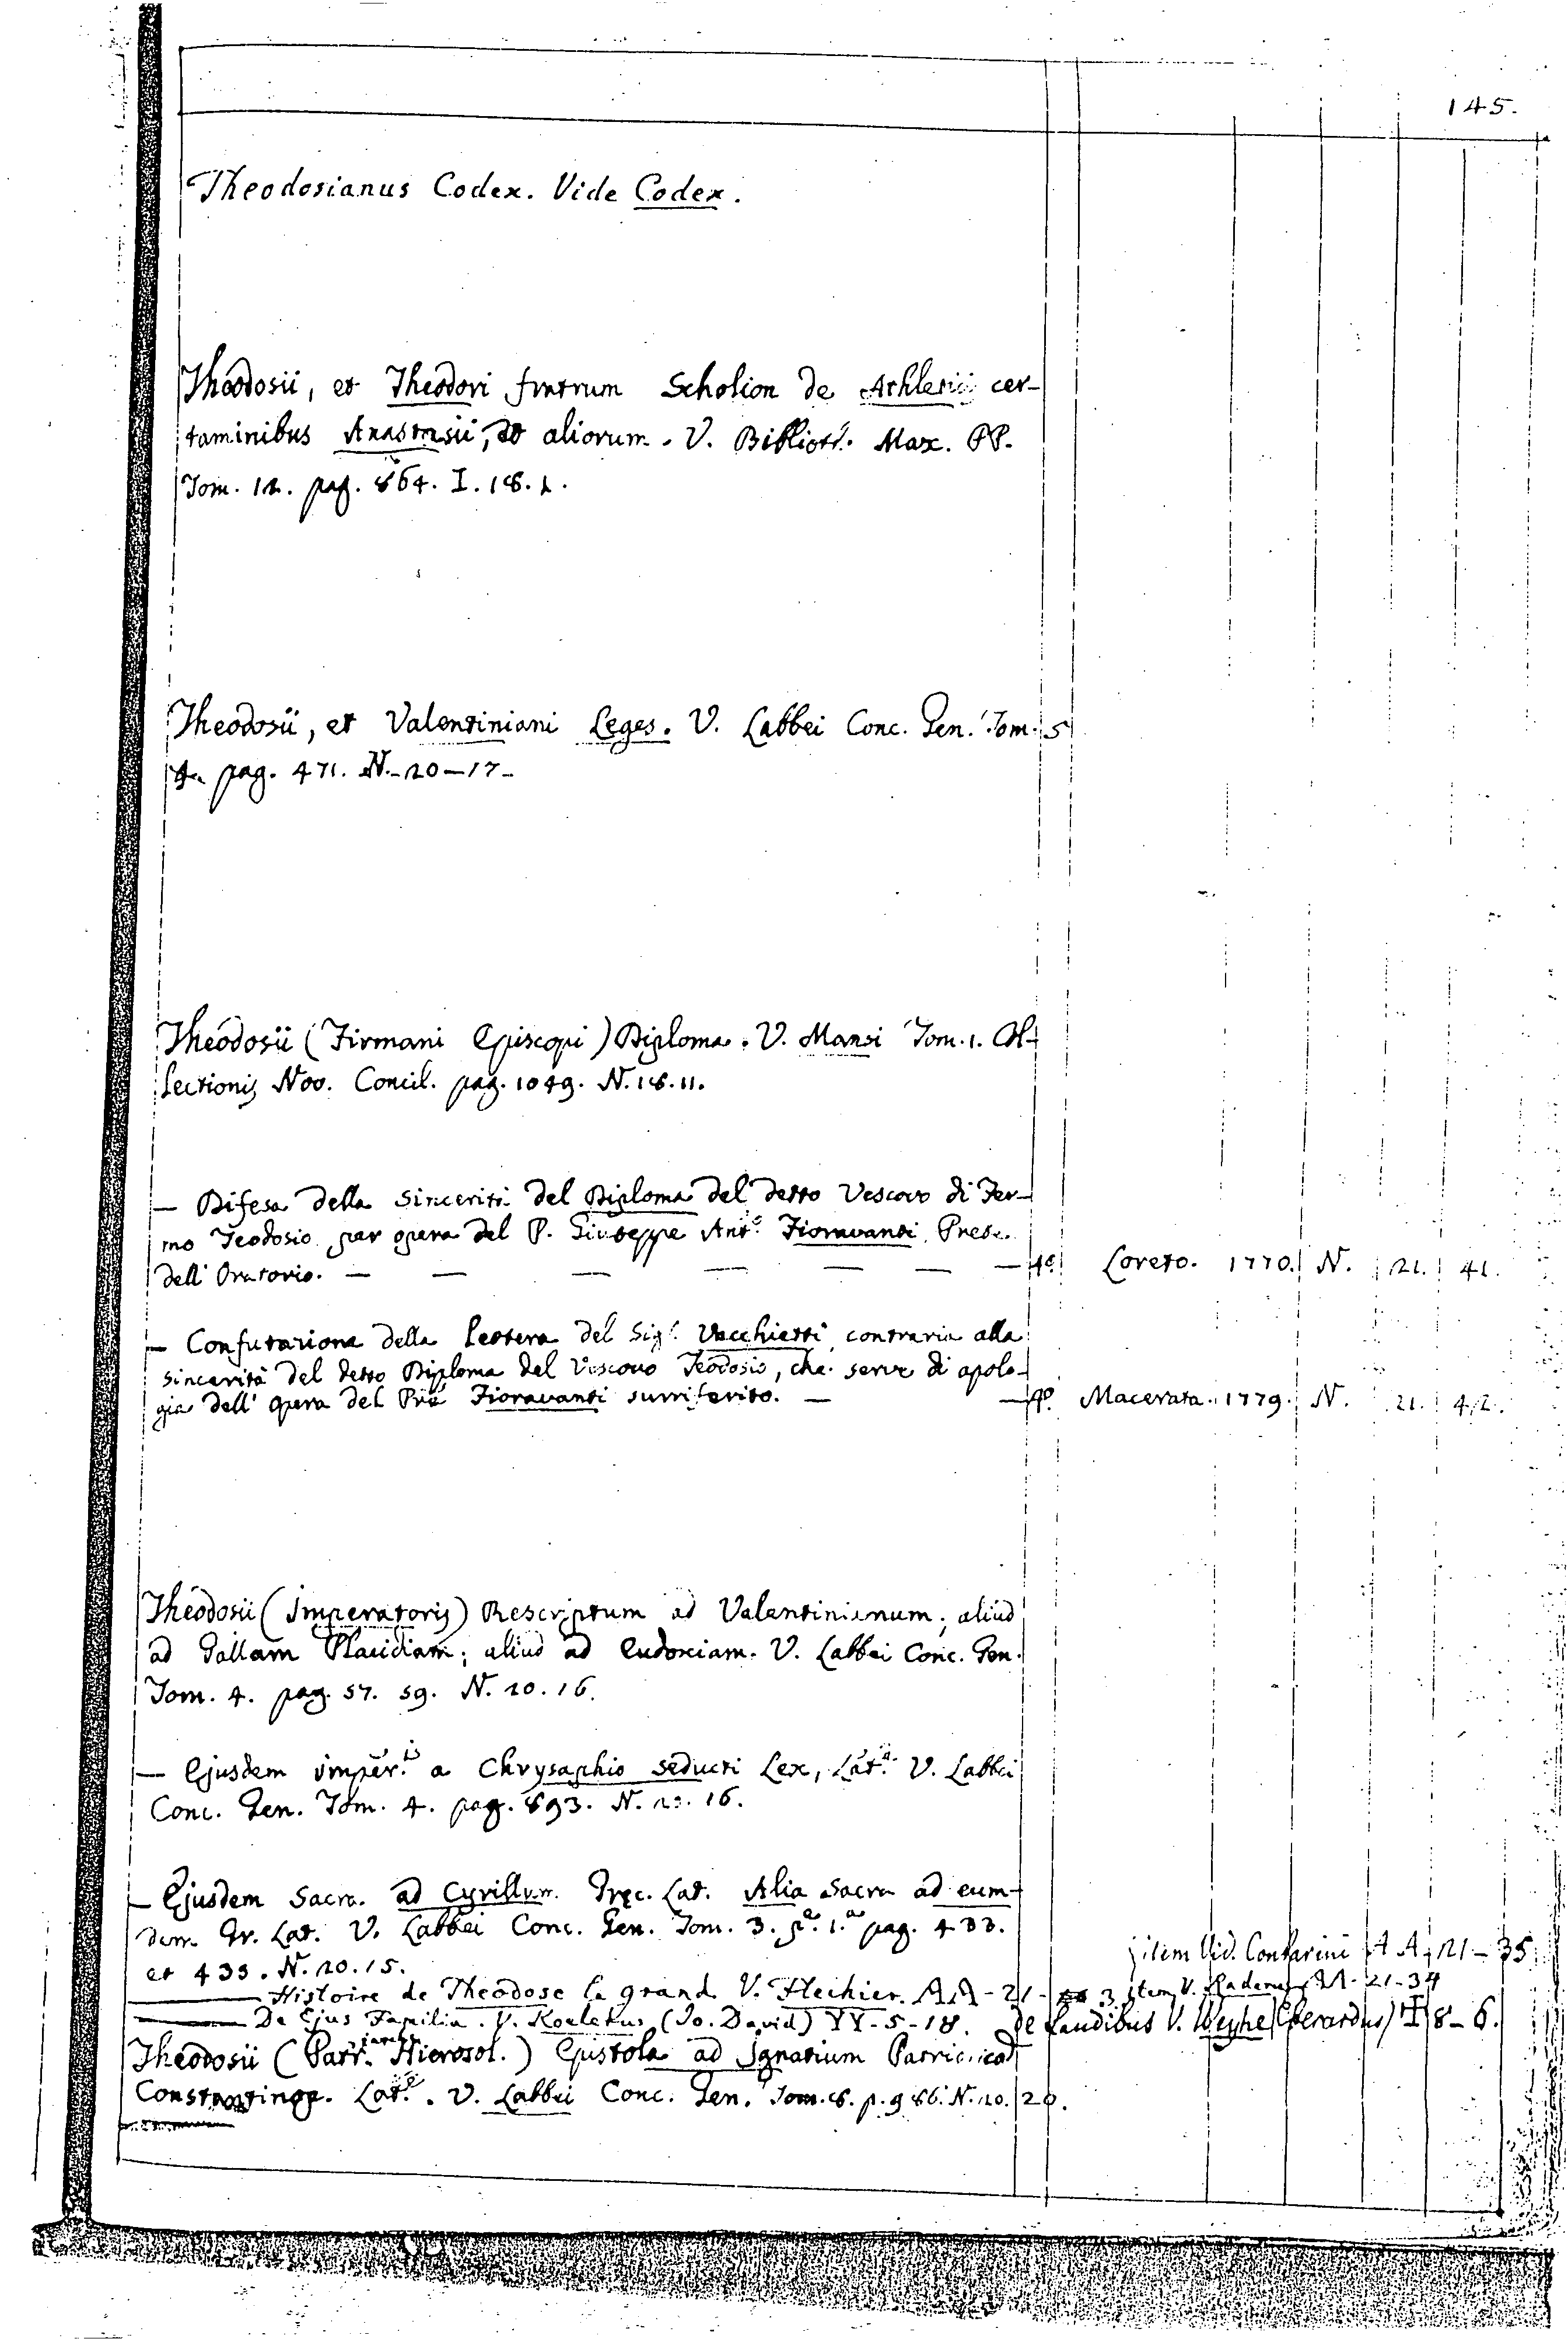 145.
Theodosianus Codex. Vide Codex.
Theodosii, et Theodori fratrum Scholion de Athleticis cer-
taminibus Anastasii, et aliorum. V. Biblioth. Max. PP.
Tom. 12. pag. 864. I. 18. 1.
Theodosii, et Valentiniani Leges. V. Labbei Conc. Gen. Tom. 5
pag. 471. N.-20-17-
Theodosii (Firmani Episcopi) Diploma. V. Mansi Tom. 1. Col-
lectionis Nov. Concil. pag. 1049. N. 18. 11.
— Difesa della sincerità del Diploma del detto Vescovo di Fer-
mo Teodosio per opera del P. Giuseppe Ant.o Fioravanti Prete
dell' Oratorio. — — — — — — — 4o Loreto. 1770. N. 21. 41.
— Confutazione della Lettera del Sigr. Vecchietti contraria alla
sincerità del detto Diploma del Vescovo Teodosio, che serve di apolo-
gia dell' opera del Prè Fioravanti surriferito. — — 4o. Macerata. 1779. N. 21. 42.
Theodosii (Imperatoris) Rescriptum ad Valentinianum; aliud
ad Gallam Placidiam; aliud ad Eudoxiam. V. Labbei Conc. Gen.
Tom. 4. pag. 57. 59. N. 20. 16.
— Ejusdem imper.is a Chrysaphio seducti Lex, Lat.a V. Labbei
Conc. Gen. Tom. 4. pag. 893. N. 20. 16.
— Ejusdem Sacra ad Cyrillum Gręc. Lat. Alia Sacra ad eum-
dem Gr. Lat. V. Labbei Conc. Gen. Tom. 3. pa. 1.a pag. 433.
et 435. N. 20. 15. item Vid. Contarini AA-21-35
— Histoire de Theodose le grand V. Flechier. AA-21- 3 item V. AA-21-34
— De Ejus Familia. V. Koelerus (Jo. David) YY-5-18. de laudibus V. Weyhe (Eberardus) 8-6.
Theodosii (Patriarchæ Hierosol.) Epistola ad Ignatium
Constantinop. Lat.e. V. Labbei Conc. Gen. Tom. 8. p. 986. N. 20. 20.